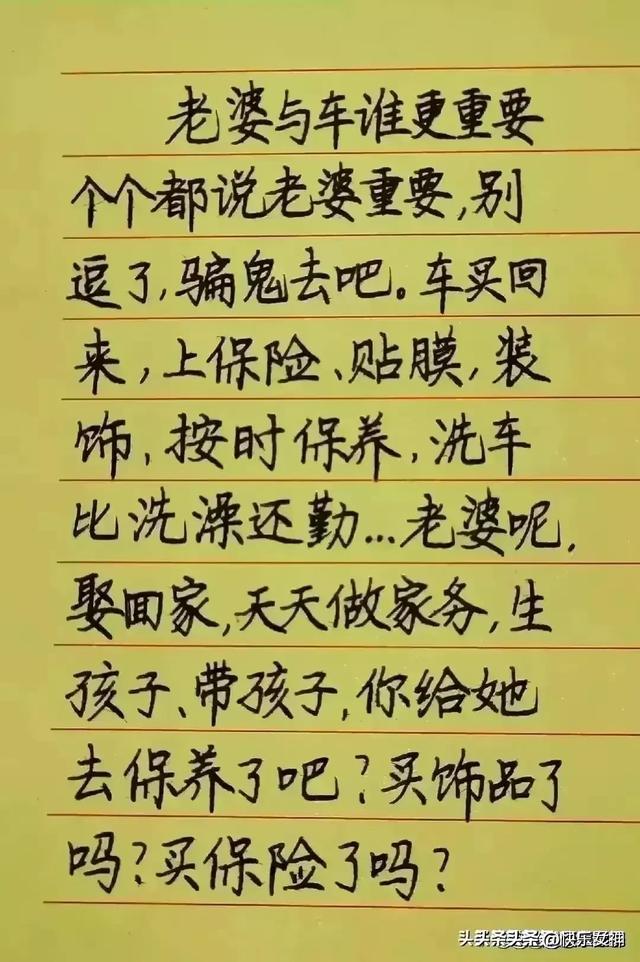 老婆与车谁更重要
个个都说老婆重要,别
逗了,骗鬼去吧。车买回
来,上保险、贴膜,装
饰,按时保养,洗车
比洗澡还勤...老婆呢,
娶回家,天天做家务,生
孩子、带孩子,你给她
去保养了吧?买饰品了
吗?买保险了吗?
头头条头条@快乐女神